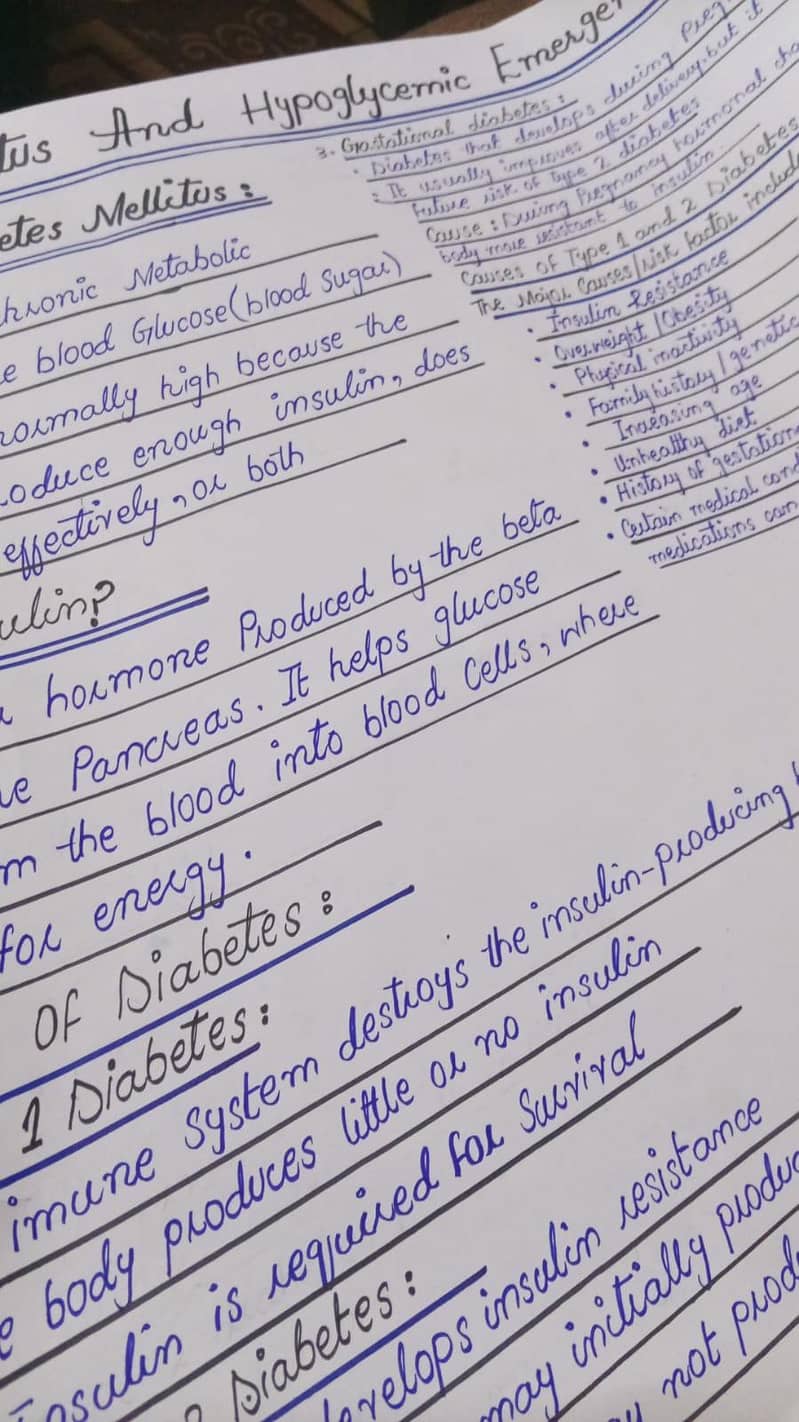 tus And Hypoglycemic Emerge
etes Mellitus :
hronic Metabolic
e blood Glucose (blood Sugar)
normally high because the
roduce enough insulin, does
effectively, or both
ulin?
hormone Produced by the beta
he Pancreas. It helps glucose
m the blood into blood Cells, where
for energy.
Of Diabetes :
1 Diabetes :
imune System destroys the insulin-producing
e body produces little or no insulin
Insulin is required for Survival
Diabetes :
develops insulin resistance
may initially produc
not prod
3. Gestational diabetes :
• Diabetes that develops during Preg
• It usually improves after delivery, but it
future risk of Type 2 diabetes
Cause : During Pregnancy hormonal cha
body more resistant to insulin
Causes Of Type 1 and 2 Diabetes
The Major Causes/risk factor include
• Insulin Resistance
• Overweight / Obesity
• Physical inactivity
• Family history / genetic
• Increasing age
• Unhealthy diet
• History of gestation
• Certain medical cond
medications can